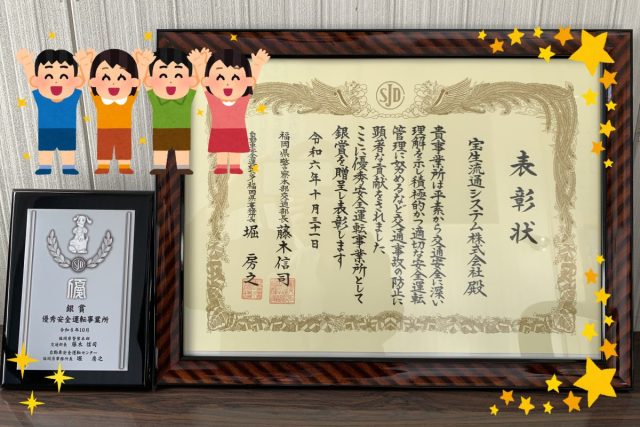 SJD
表彰状
宝生流通システム株式会社 殿
貴事業所は平素から交通安全に深い
理解を示し積極的かつ適切な安全運転
管理に努めるなど交通事故の防止に
顕著な貢献をされました
ここに優秀安全運転事業所として
銀賞を贈呈し表彰します
令和六年十月三十一日
福岡県警察本部交通部長 藤木信司
自動車安全運転センター福岡県事務所長 堀 房之
優
銀賞
優秀安全運転事業所
令和6年10月
福岡県警察本部
交通部長 藤木 信司
自動車安全運転センター
福岡県事務所長 堀 房之